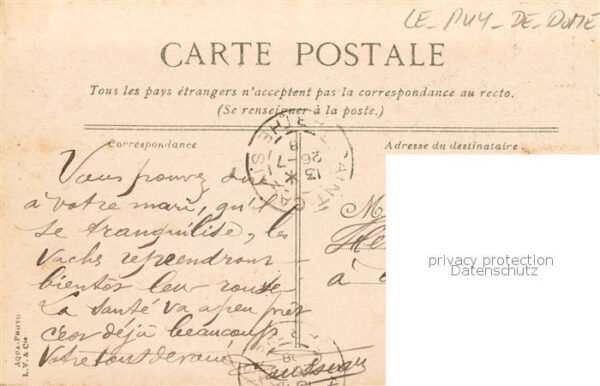 LE_PUY_DE_DOME
CARTE POSTALE
Tous les pays étrangers n'acceptent pas la correspondance au recto.
(Se renseigner à la poste.)
Correspondance
Adresse du destinataire
Vous pouvez dire
à votre mari, qu'il
se tranquilise, les
vachs reprendront
bientôt leur
La santé va a peu près
c'est déjà beaucoup
Votre tout dévoué
M
à
privacy protection
Datenschutz
AQUA-PHOTO
L. V. & Cie
13
26-7